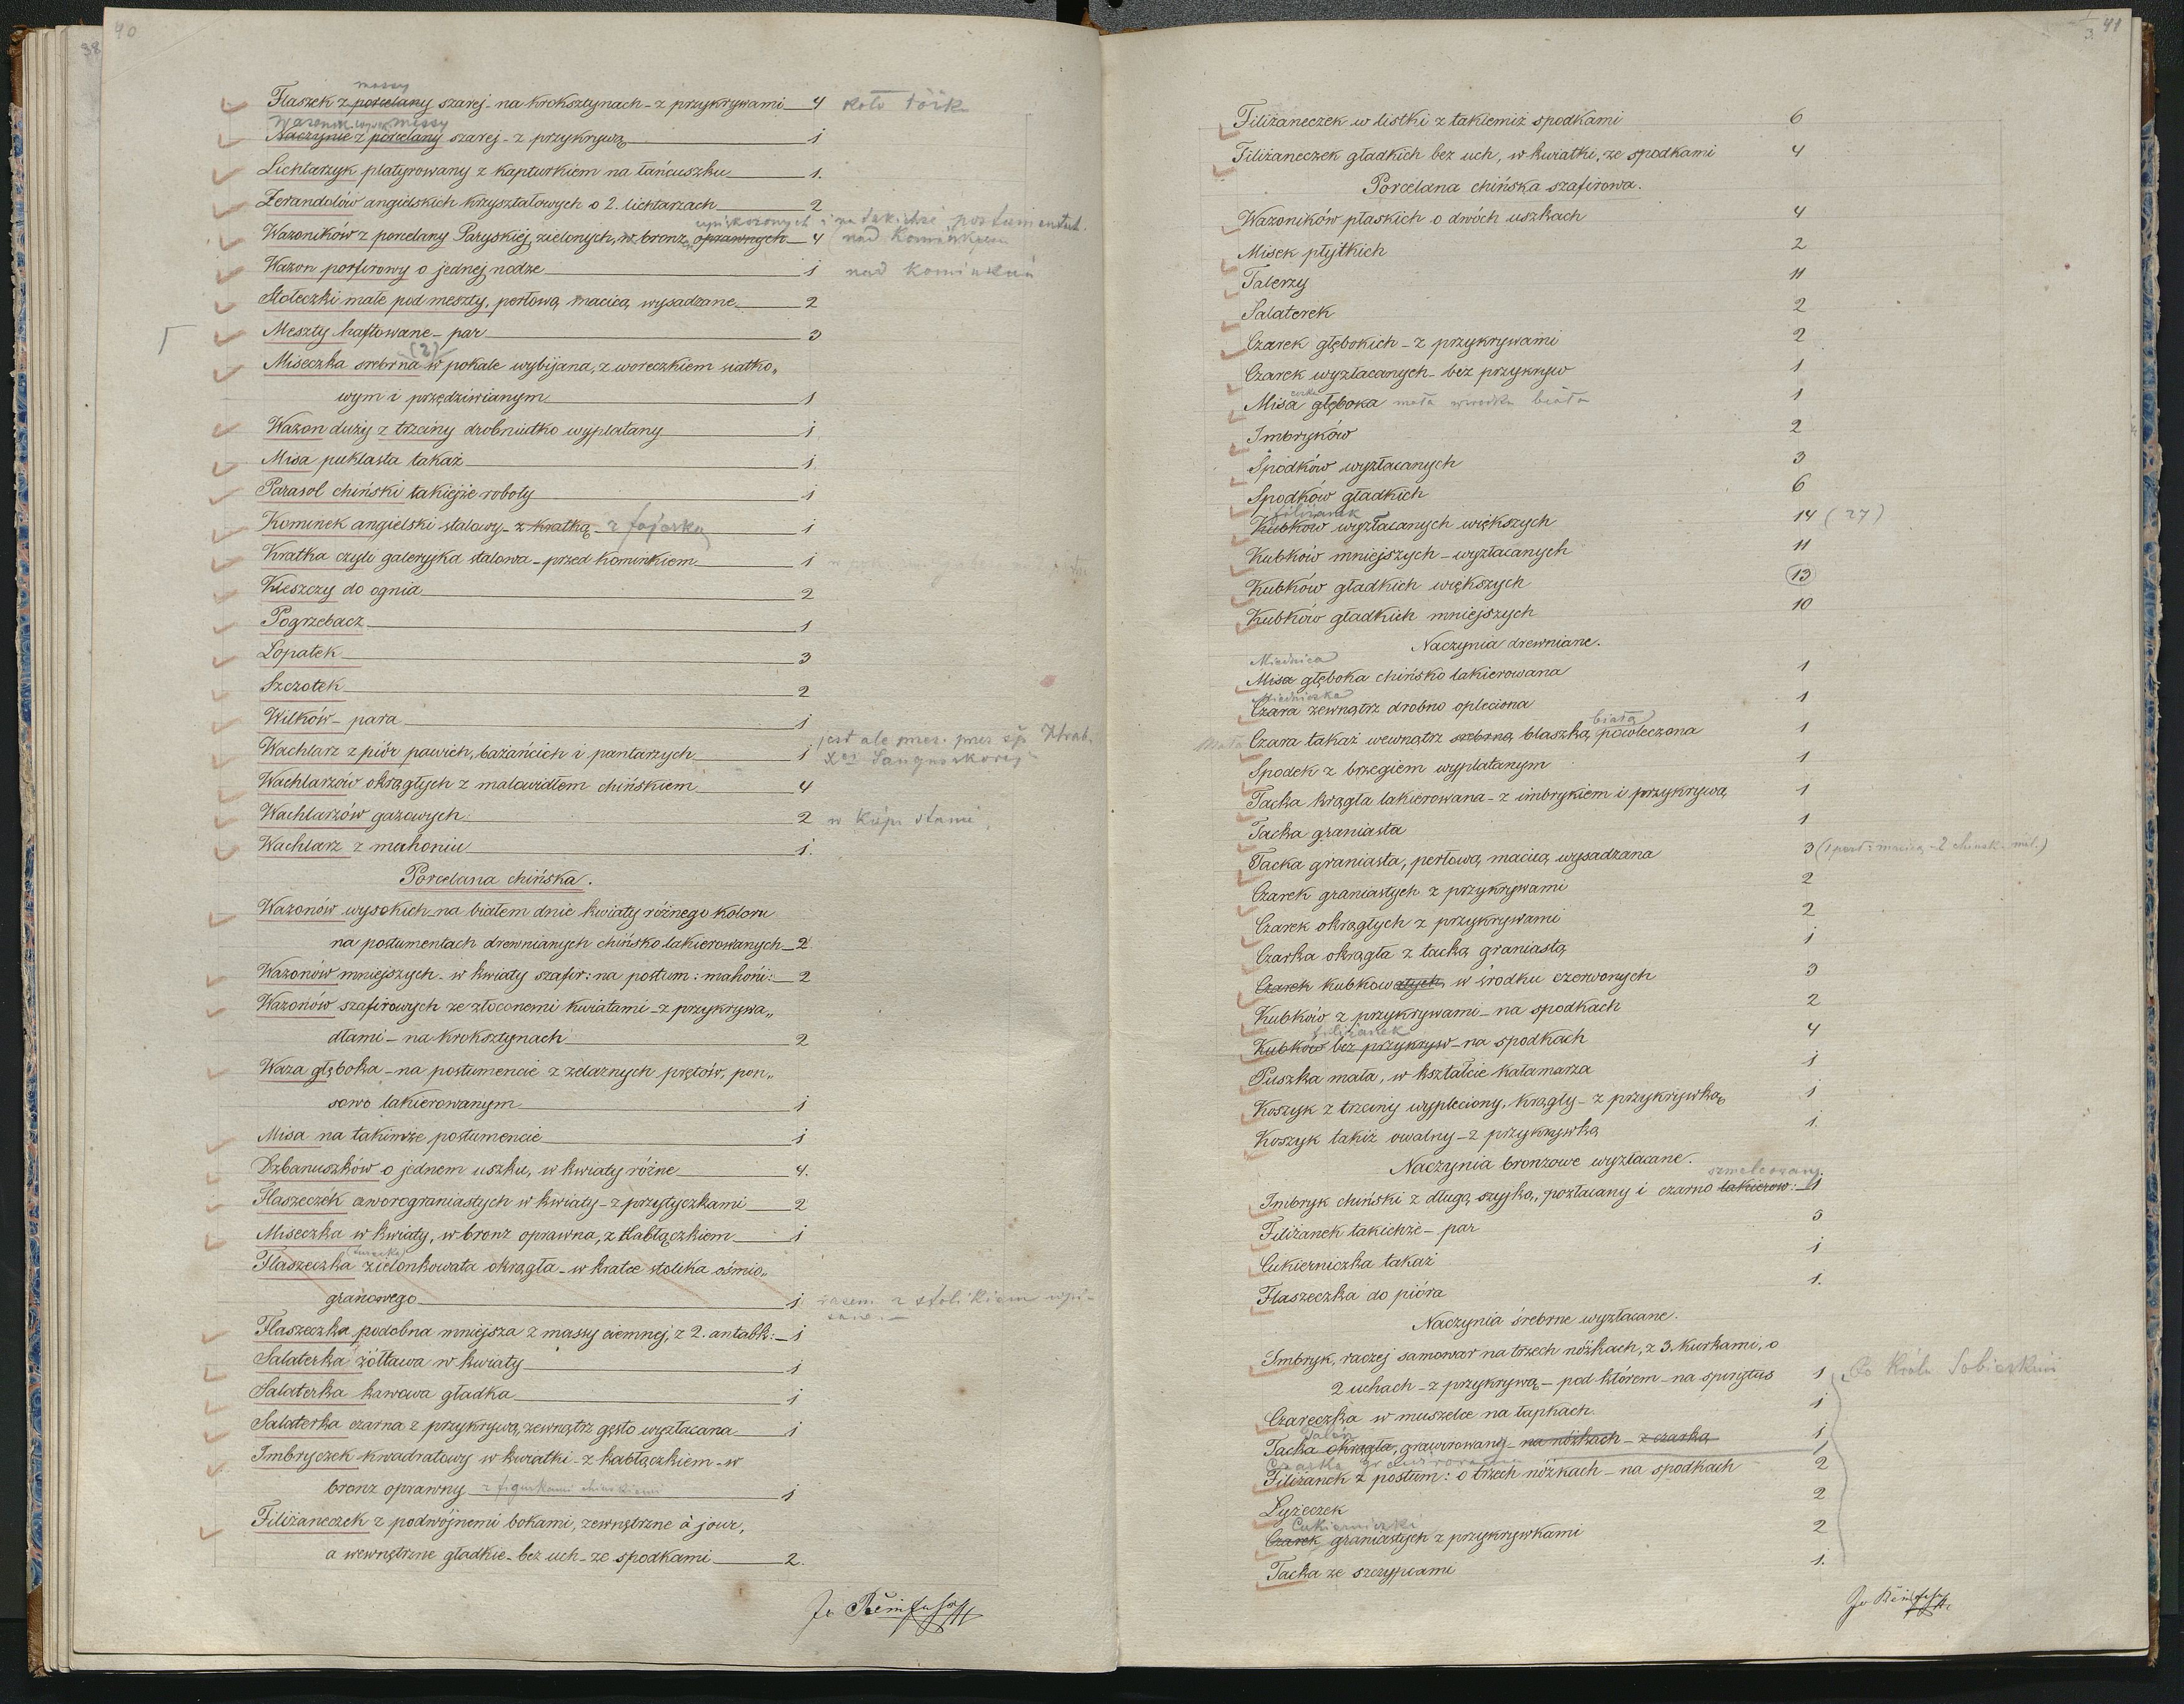 40
38
massy
Flaszek z porcelany szarej - na kroksztynach - z przykrywami 4 koło łóżka
Wazonik massy
Naczynie z porcelany szarej - z przykrywą 1
Lichtarzyk platyrowany z kapturkiem na łańcuszku 1.
Żerandolów angielskich kryształowych o 2. lichtarzach 2
i na takichże postumentach
Wazoników z porcelany Paryskiej, zielonych, w bronz oprawnych 4 nad kominkiem
Wazon porfirowy o jednej nodze 1 nad kominkiem
Stołeczki małe pod meszty, perłową macicą wysadzane 2
Meszty haftowane - par 3
(2)
Miseczka srebrna w pokale wybijana, z woreczkiem siatko„
wym i przędziwianym 1
Wazon duży z trzciny drobniutko wyplatany 1
Misa puklasta takaż 1
Parasol chiński takiejże roboty 1
Kominek angielski stalowy - z kratką z fajerką 1
Kratka czyli galeryjka stalowa - przed kominkiem 1
Kleszczy do ognia 2
Pogrzebacz 1
Łopatek 3
Szczotek 2
Wilków - para 1
jest ale
Wachlarz z piór pawich, bażancich i pantarzych 1 Sanguszkowej
Wachlarzów okrągłych z malowidłem chińskiem 4
Wachlarzów gazowych 2
Wachlarz z mahoniu 1.
Porcelana chińska.
Wazonów wysokich na białem dnie kwiaty różnego koloru
na postumentach drewnianych chińsko lakierowanych 2
Wazonów mniejszych - w kwiaty szafir: na postum: mahoni: 2
Wazonów szafirowych ze złoconemi kwiatami - z przykrywa„
dłami - na kroksztynach 2
Waza głęboka - na postumencie z żelaznych prętów, pon„
sowo lakierowanym 1
Misa na takimże postumencie 1
Dzbanuszków o jednem uszku, w kwiaty różne 4.
Flaszeczek czworograniastych w kwiaty - z przytyczkami 2
Miseczka w kwiaty, w bronz oprawna, z kabłączkiem 1
Flaszeczka zielonkowata okrągła - w kratce stolika ośmio„
granowego 1 razem z stolikiem wpi-
sane.-
Flaszeczka podobna mniejsza z massy ciemnej, z 2. antabk: 1
Salaterka żółtawa w kwiaty 1
Salaterka kawowa gładka 1
Salaterka czarna z przykrywą, zewnątrz gęsto wyzłacana 1
Imbryczek kwadratowy w kwiatki - z kabłączkiem - w
bronz oprawny z figurkami chińskiemi 1
Filiżaneczek z podwójnemi bokami, zewnętrzne à jour,
a wewnętrzne gładkie - bez uch - ze spodkami 2.
41
3
Filiżaneczek w listki z taklemiż spodkami 6
Filiżaneczek gładkich bez uch, w kwiatki, ze spodkami 4
Porcelana chińska szafirowa.
Wazoników płaskich o dwóch uszkach 4
Misek płytkich 2
Talerzy 11
Salaterek 2
Czarek głębokich - z przykrywami 2
Czarek wyzłacanych - bez przykryw 1
Misa głęboka mała w środku biała 1
Imbryków 2
Spodków wyzłacanych 3
Spodków gładkich 6
filiżanek
Kubków wyzłacanych większych 14 (27)
Kubków mniejszych - wyzłacanych 11
Kubków gładkich większych 13
Kubków gładkich mniejszych 10
Naczynia drewniane.
Miednica
Misa głęboka chińsko lakierowana 1
Miedniczka
Czara zewnątrz drobno opleciona 1
białą
Mała Czara takaż wewnątrz srebrną blaszką powleczona 1
Spodek z brzegiem wyplatanym 1
Tacka krągła lakierowana - z imbrykiem i przykrywą 1
Tacka graniasta 1
Tacka graniasta, perłową macicą wysadzana 3 (1 perł: macicą - 2 chińsk. mal.)
Czarek graniastych z przykrywami 2
Czarek okrągłych z przykrywami 2
Czarka okrągła z tacką graniastą 1
Czarek kubkowatych, w środku czerwonych 3
Kubków z przykrywami - na spodkach 2
filiżanek
Kubków bez przykryw - na spodkach 4
Puszka mała, w kształcie kałamarza 1
Koszyk z trzciny wypleciony, krągły - z przykrywką 1
Koszyk takiż owalny - z przykrywką 1.
Naczynia bronzowe wyzłacane.
szmelcowany.
Imbryk chiński z długą szyjką, pozłacany i czarno lakierow: 1
Filiżanek takichże - par 3
Cukierniczka takaż 1
Flaszeczka do pióra 1.
Naczynia śrebrne wyzłacane.
Imbryk, raczej samowar na trzech nóżkach, z 3. kurkami, o
2 uchach - z przykrywą - pod którem - na spirytus 1 Po Królu Sobieskim
Czareczka w muszelce na łapkach. 1
Talerz
Tacka okrągła, grawirowany - na nóżkach - z czarką 1
Czarka grawirowana 1
Filiżanek z postum: o trzech nóżkach - na spodkach 2
Łyżeczek 2
Cukierniczki
Czarek graniastych z przykrywkami 2
Tacka ze szczypcami 1.